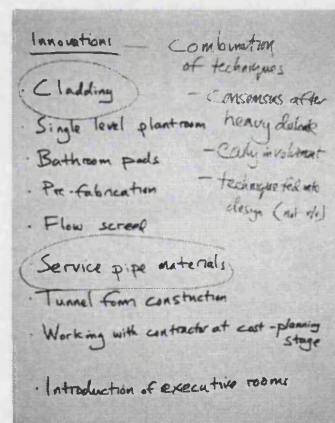 Innovations — Combination
of techniques
· Cladding
- Consensus after
heavy debate
· Single level plantroom
- Early involvement
· Bathroom pods
- technique fed into
design (not v/v)
· Pre-fabrication
· Flow screed
· Service pipe materials
· Tunnel form construction
· Working with contractor at cost-planning
stage
· Introduction of executive rooms